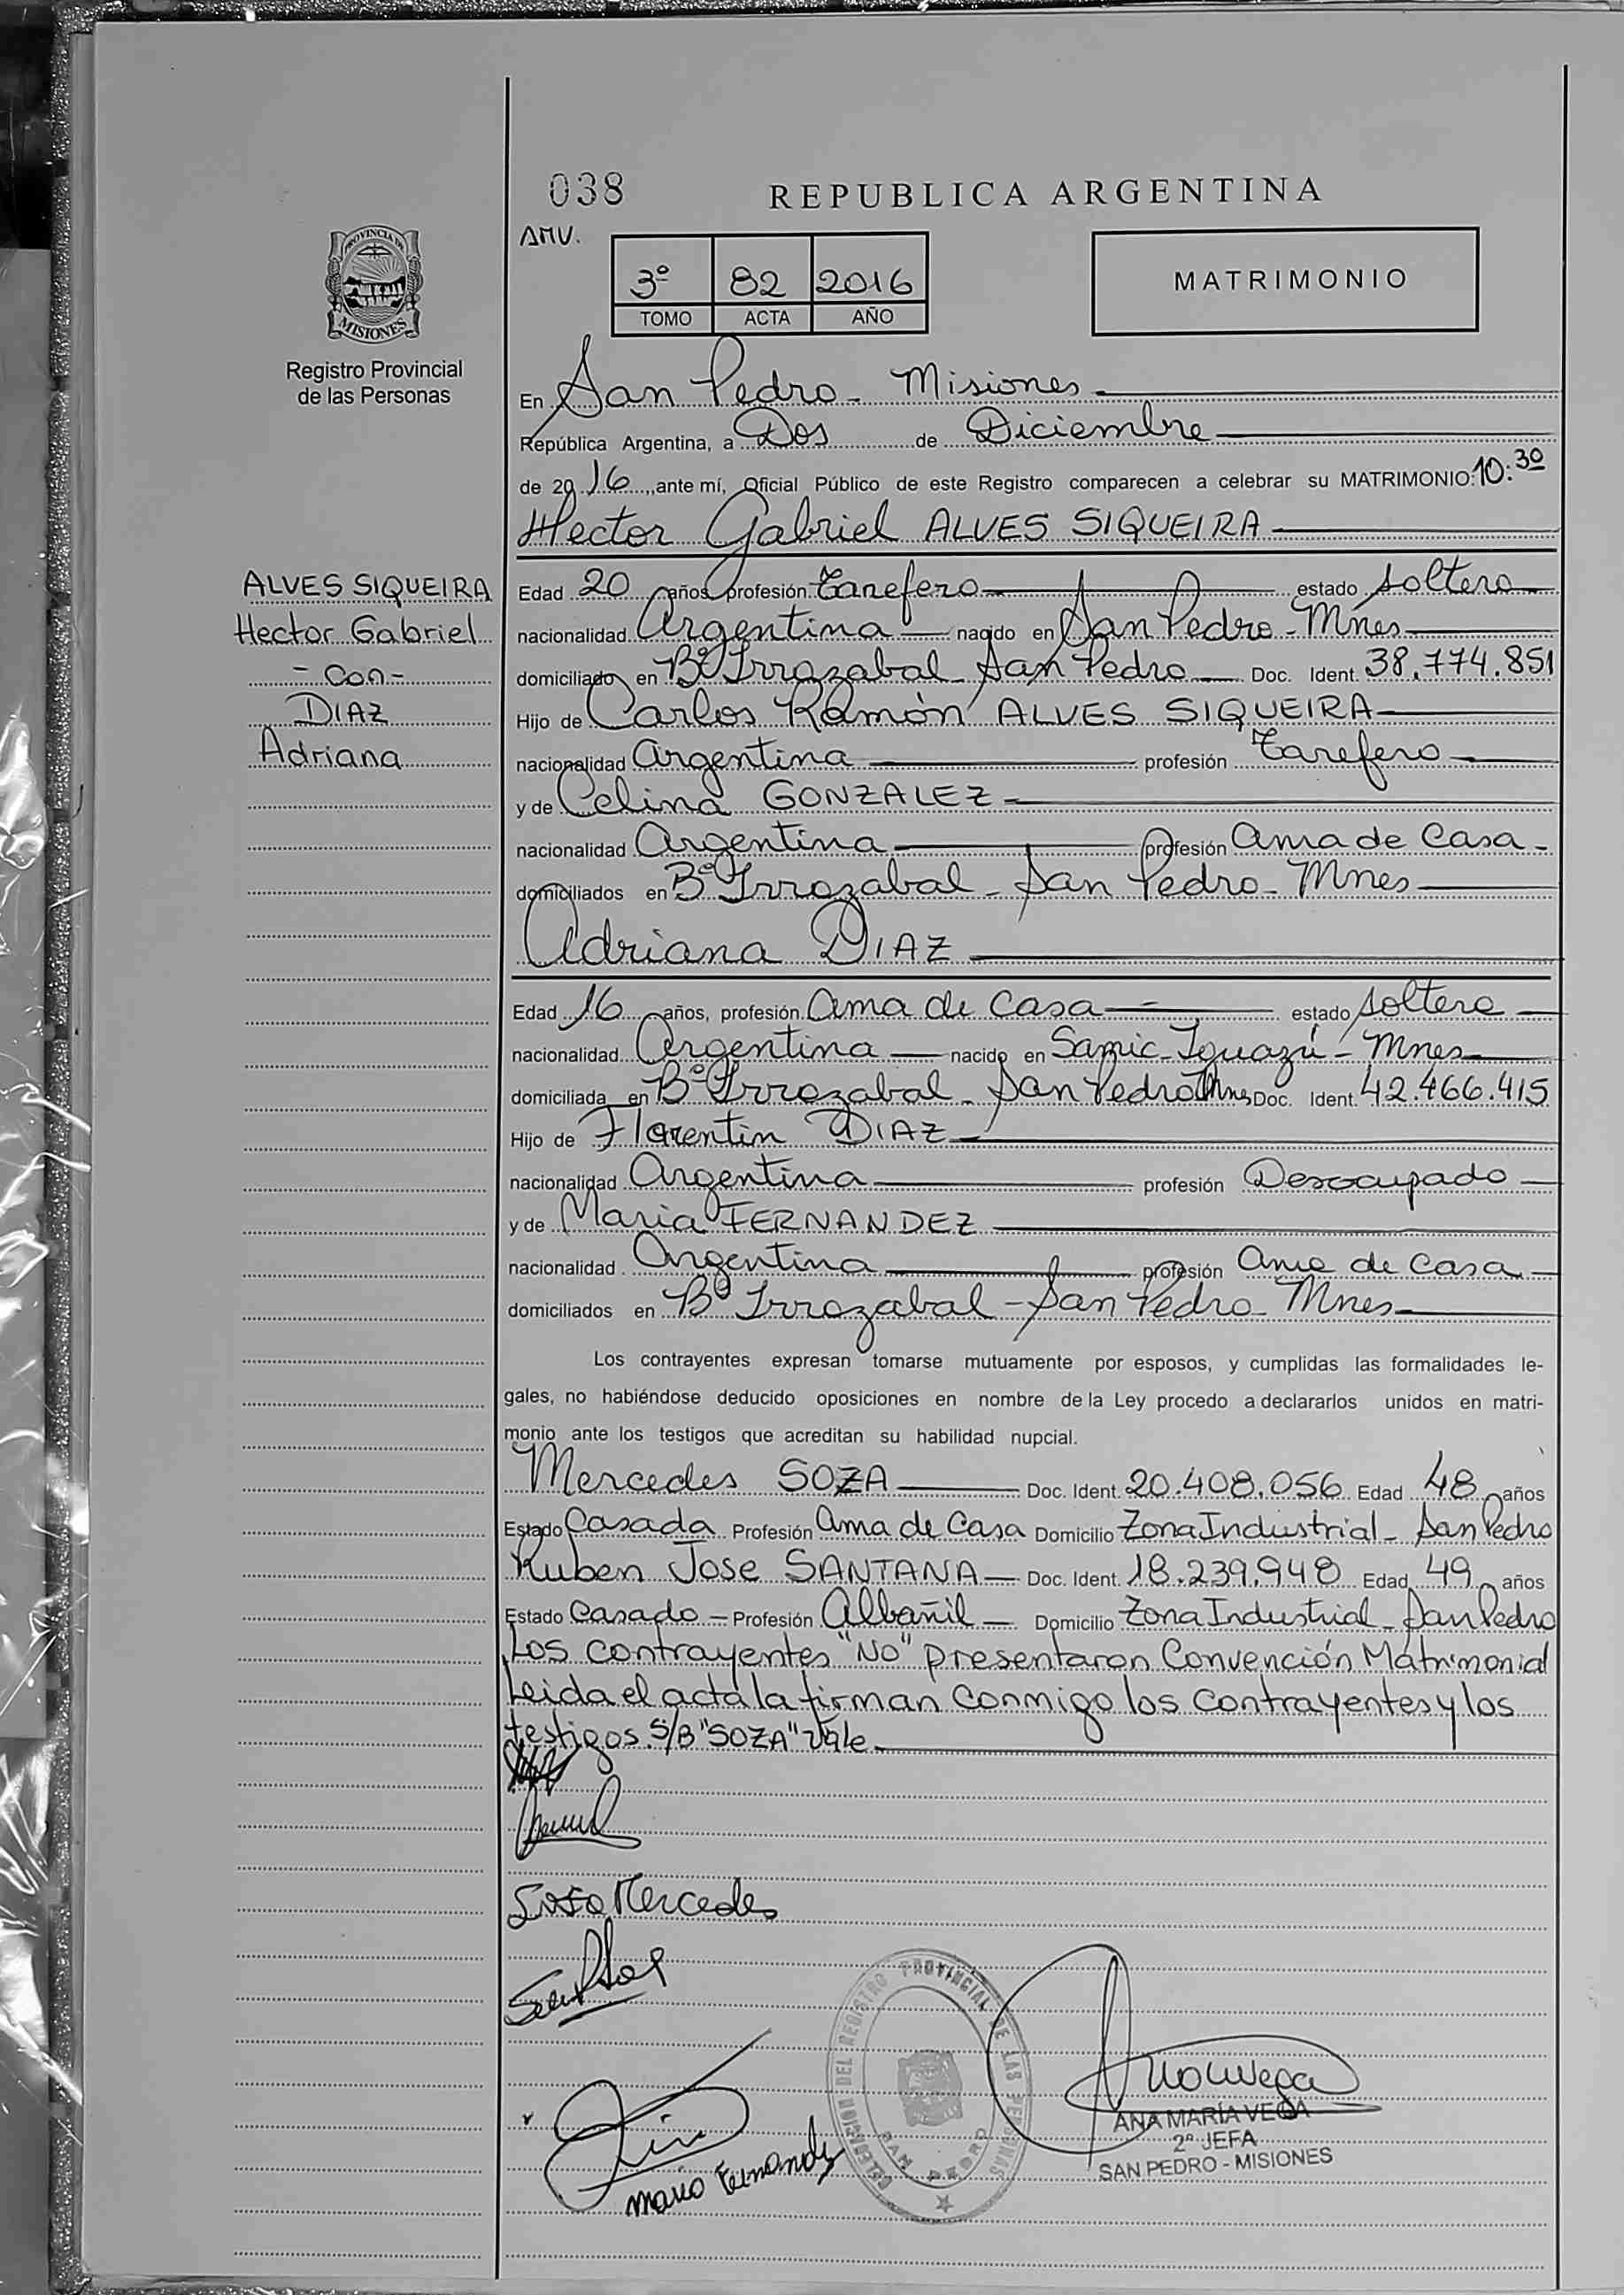 038
REPUBLICA ARGENTINA
AMV.
3º 82 2016
TOMO ACTA AÑO
MATRIMONIO
PROVINCIA DE
MISIONES
Registro Provincial
de las Personas
En San Pedro - Misiones
República Argentina, a Dos de Diciembre
de 2016, ante mí, Oficial Público de este Registro comparecen a celebrar su MATRIMONIO: 10:30
Hector Gabriel ALVES SIQUEIRA
ALVES SIQUEIRA
Hector Gabriel
- con -
DIAZ
Adriana
Edad 20 años, profesión Tarefero estado soltero
nacionalidad Argentina nacido en San Pedro - Mnes
domiciliado en Bº Irrozabal - San Pedro Doc. Ident. 38.774.851
Hijo de Carlos Ramón ALVES SIQUEIRA
nacionalidad Argentina profesión Tarefero
y de Celina GONZALEZ
nacionalidad Argentina profesión Ama de Casa -
domiciliados en Bº Irrozabal - San Pedro - Mnes
Adriana DIAZ
Edad 16 años, profesión Ama de Casa estado soltera
nacionalidad Argentina nacido en Samic - Iguazú - Mnes
domiciliada en Bº Irrozabal - San Pedro Mnes Doc. Ident. 42.466.415
Hijo de Florentin DIAZ
nacionalidad Argentina profesión Desocupado
y de Maria FERNANDEZ
nacionalidad Argentina profesión Ama de Casa
domiciliados en Bº Irrozabal - San Pedro - Mnes
Los contrayentes expresan tomarse mutuamente por esposos, y cumplidas las formalidades le-
gales, no habiéndose deducido oposiciones en nombre de la Ley procedo a declararlos unidos en matri-
monio ante los testigos que acreditan su habilidad nupcial.
Mercedes SOZA Doc. Ident. 20.408.056 Edad 48 años
Estado Casada Profesión Ama de Casa Domicilio Zona Industrial - San Pedro
Ruben Jose SANTANA Doc. Ident. 18.239.948 Edad 49 años
Estado Casado - Profesión Albañil - Domicilio Zona Industrial - San Pedro
Los contrayentes "NO" presentaron Convención Matrimonial
Leida el acta la firman conmigo los contrayentes y los
testigos. S/B "SOZA" Vale
Mercedes
DELEGACION DEL REGISTRO PROVINCIAL DE LAS PERSONAS
SAN PEDRO
ANA MARÍA VEGA
2ª JEFA
SAN PEDRO - MISIONES
Maria Fernandez